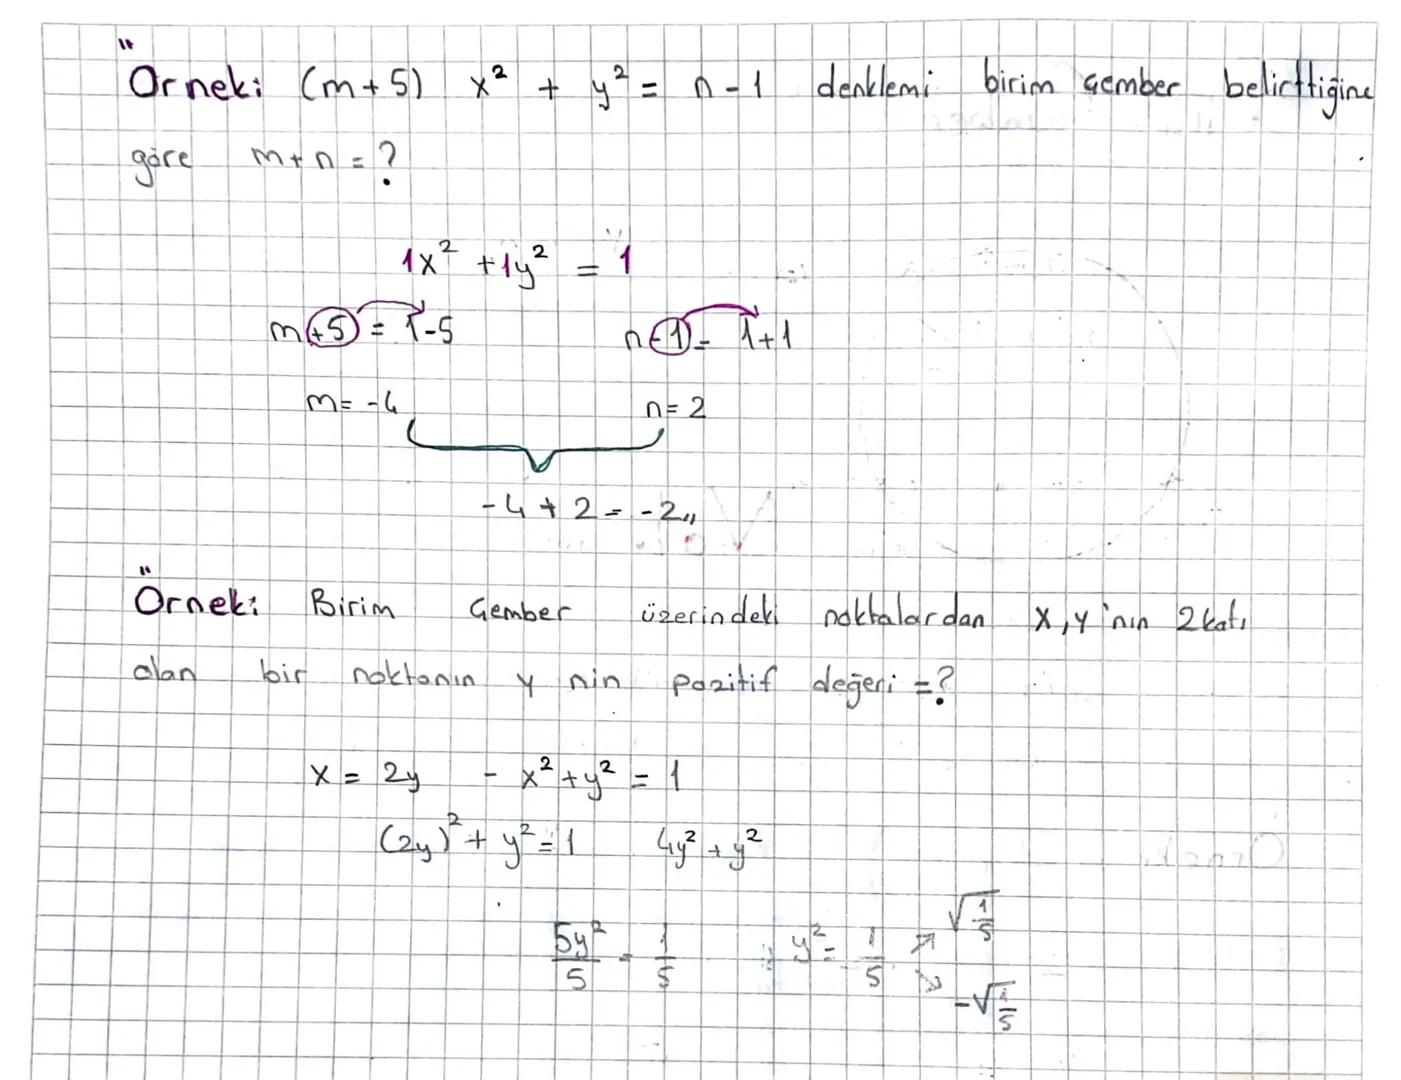 Örnek: (m+5) x² + y² = n-1 denklemi birim çember belirttiğine
göre m+n = ?
1x² + 1y² = 1
m+5 = 1-5 n-1 = 1+1
m = -4 n = 2
-4 + 2 = -2,,
Örnek: Birim Çember üzerindeki noktalardan x, y'nin 2 katı
olan bir noktanın y nin pozitif değeri = ?
x = 2y - x² + y² = 1
(2y)² + y² = 1 4y² + y²
5y²/5 = 1/5 : y² = 1/5 ↗ √1/5
↘ -√1/5